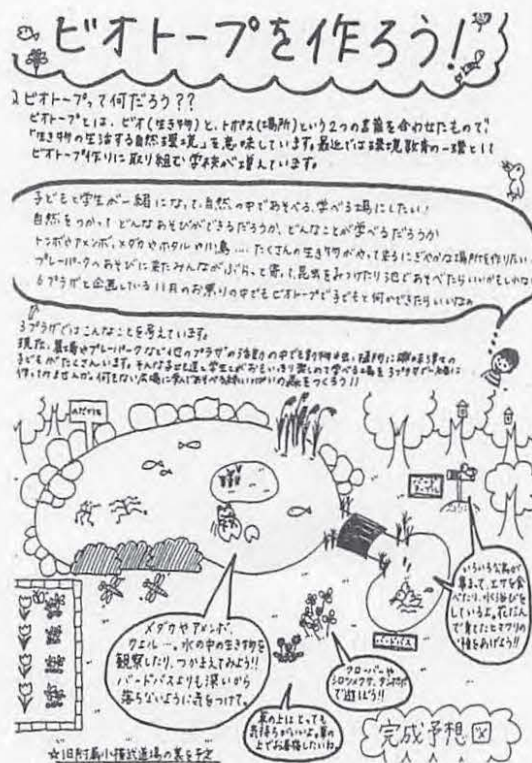 ビオトープを作ろう!
ビオトープって何だろう??
ビオトープとは、ビオ(生き物)と、トポス(場所)という2つの言葉を合わせたもので、
「生き物の生活する自然環境」を意味しています。最近では環境教育の一環として
ビオトープ作りに取り組む学校が増えています。
子どもと学生が一緒になって、自然の中であそべる、学べる場にしたい!
自然をつかってどんなあそびができるだろうか、どんなことが学べるだろうか
トンボやアメンボ、メダカやホタルや小鳥....たくさんの生き物がやって来るにぎやかな場所を作りたい
プレーパークへあそびに来たみんながぶらっと寄って、昆虫をみつけたり池であそべたらいいかもしれない
6プラザと企画している11月のお祭りの中でもビオトープで子どもと何かできたらいいなぁ
3プラザではこんなことを考えています。
現在、農場やプレーパークなど他のプラザの活動の中でも
子どもがたくさんいます。
メダカやアメンボ、
カエル…。水の中の生き物を
観察したり、つかまえてみよう!!
バードバスよりも深いから
落ちないように気をつけて。
いろいろな鳥が
集まって、エサを食
べたり、水浴びを
しているよ。花だん
で育てたヒマワリの
種をあげよう!!
バードバス
クローバーや
シロツメクサ、タンポポ
で遊ぼう!!
草の上はとっても
気持ちがいいよ。草の
上でお昼寝したいね。
完成予想図
☆旧附属小横武道場の裏を予定